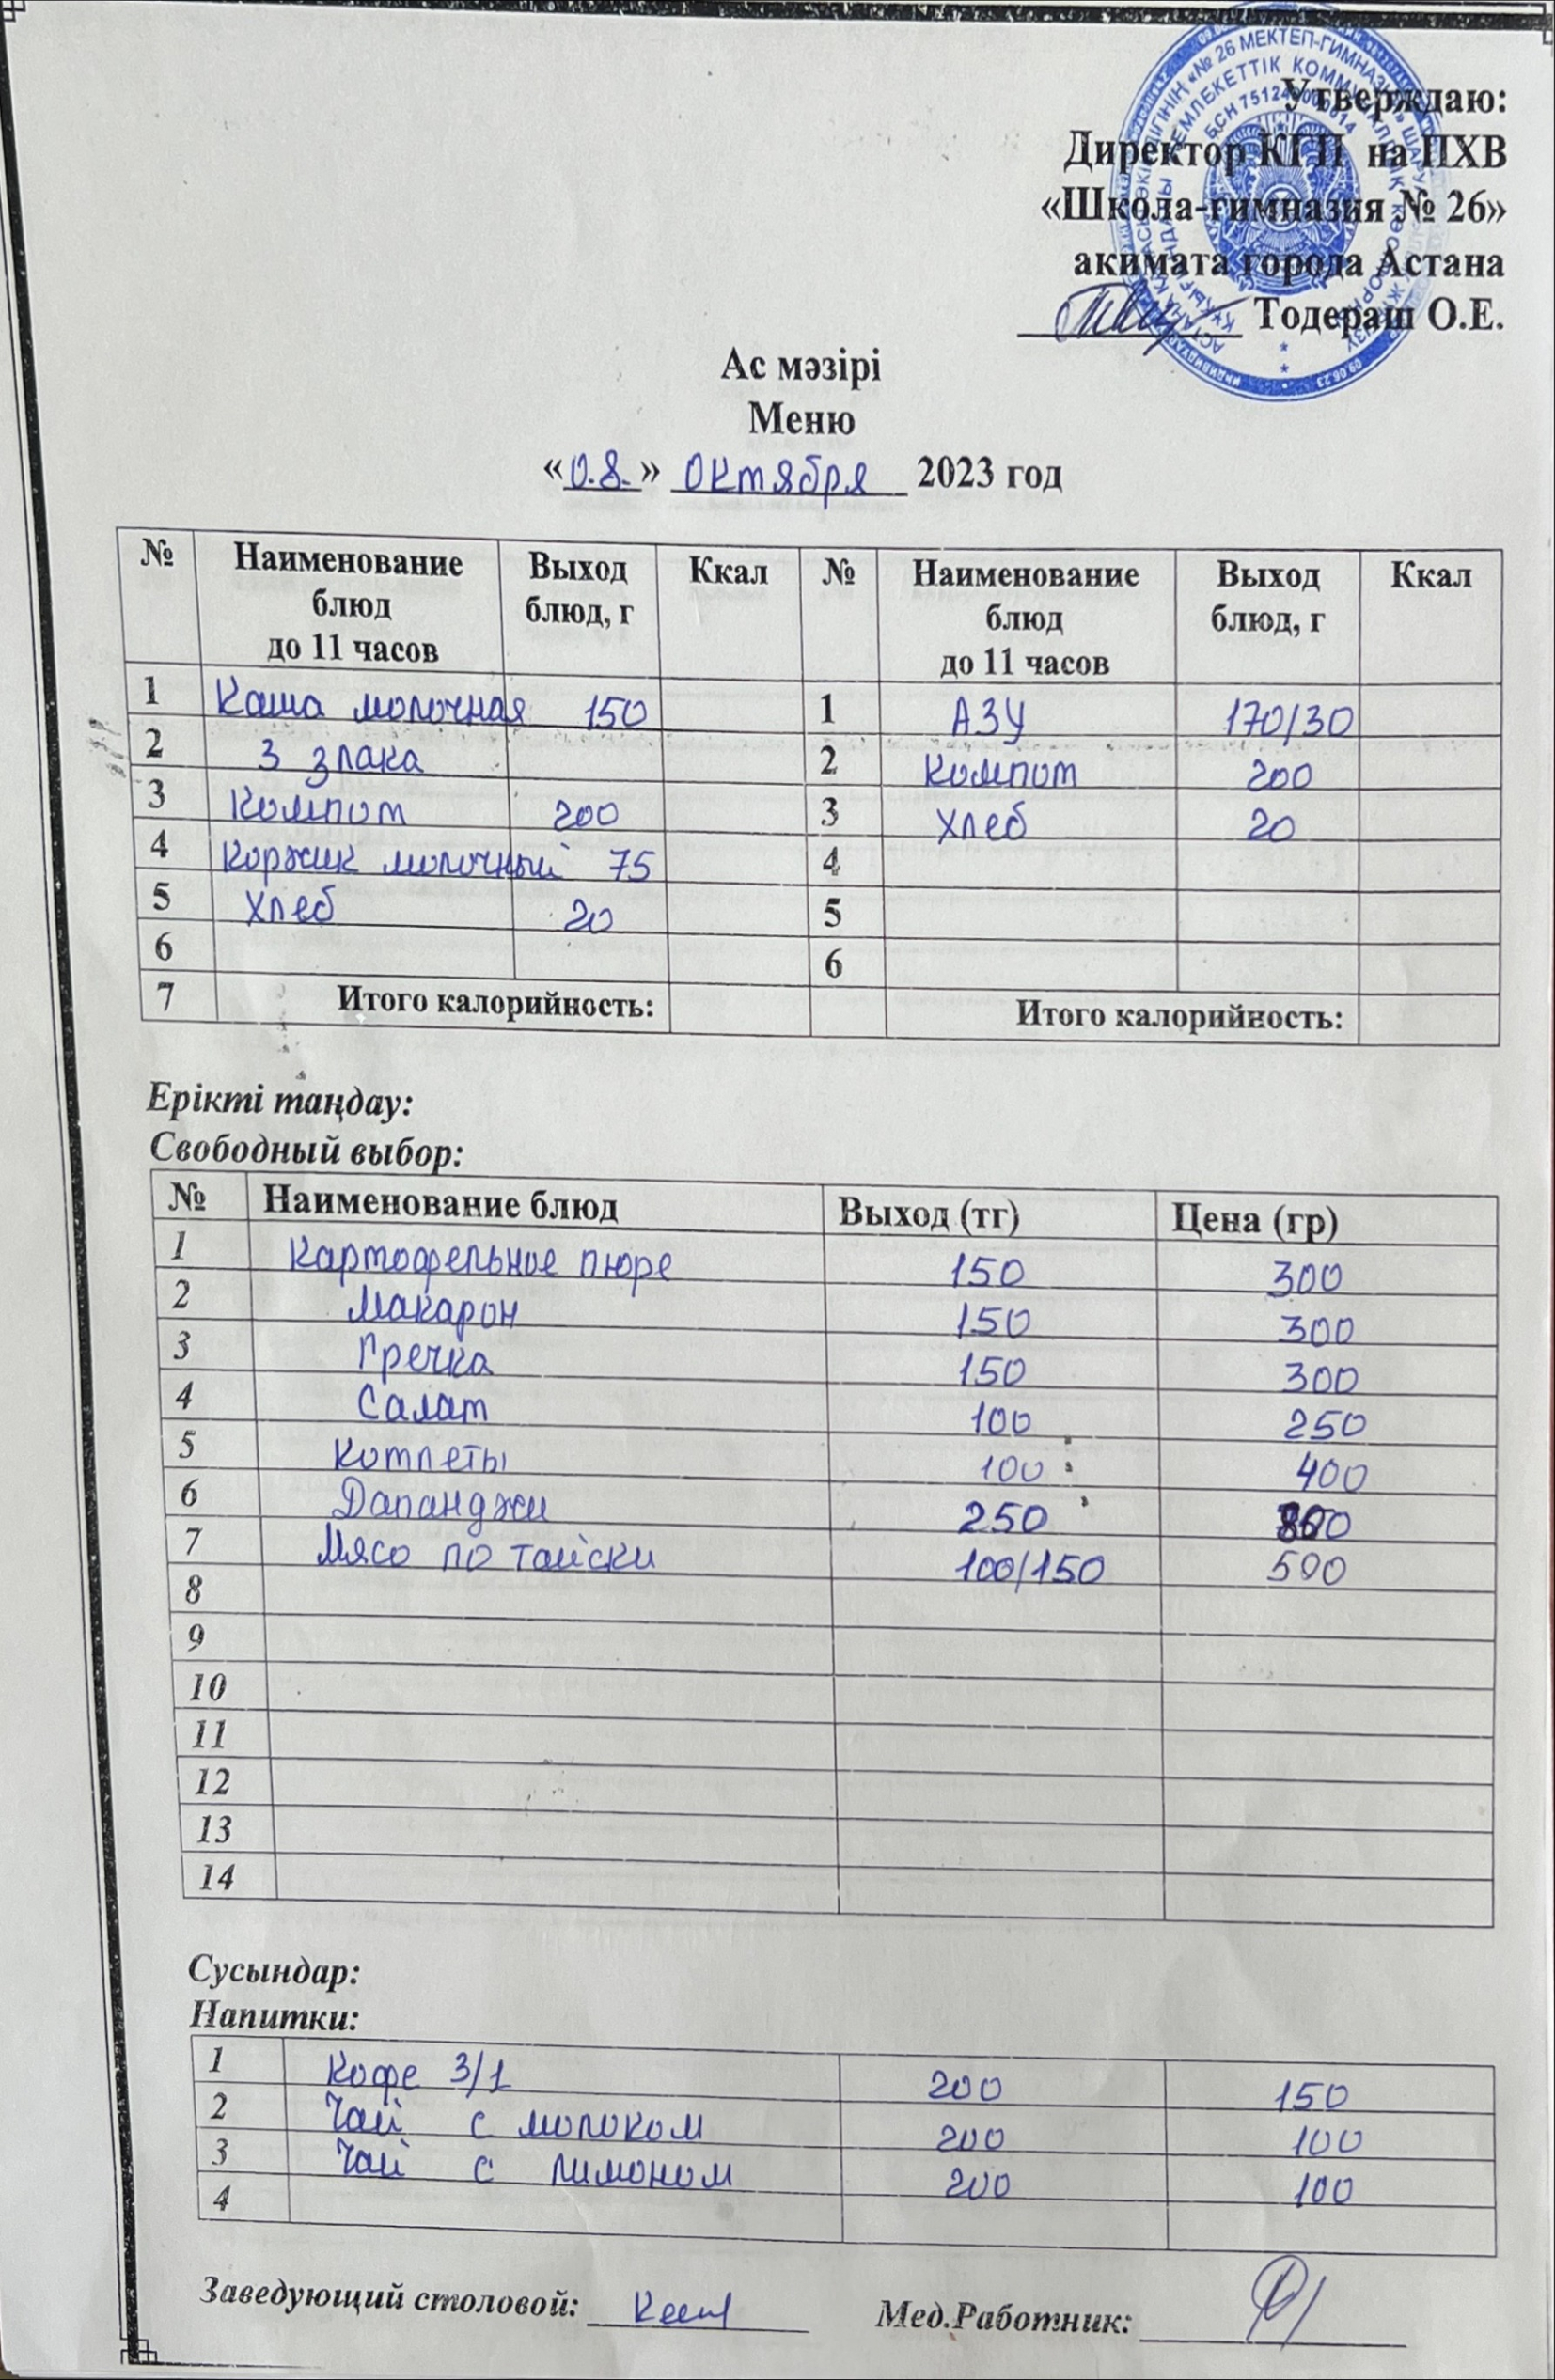 Утверждаю:
Директор КГП на ПХВ
«Школа-гимназия № 26»
акимата города Астана
Тодераш О.Е.
Ас мәзірі
Меню
«0.8.» октября 2023 год
№ Наименование блюд до 11 часов Выход блюд, г Ккал № Наименование блюд до 11 часов Выход блюд, г Ккал
1 Каша молочная 150 1 Азу 170/30
2 3 злака 2 Компот 200
3 Компот 200 3 Хлеб 20
4 Коржик молочный 75 4
5 Хлеб 20 5
6 6
7 Итого калорийность: Итого калорийность:
Ерікті таңдау:
Свободный выбор:
№ Наименование блюд Выход (тг) Цена (гр)
1 Картофельное пюре 150 300
2 Макарон 150 300
3 Гречка 150 300
4 Салат 100 250
5 Котлеты 100 400
6 Дапанджи 250
7 Мясо по тайски 100/150 500
8
9
10
11
12
13
14
Сусындар:
Напитки:
1 Кофе 3/1 200 150
2 Чай с молоком 200 100
3 Чай с лимоном 200 100
4
Заведующий столовой: Мед.Работник: